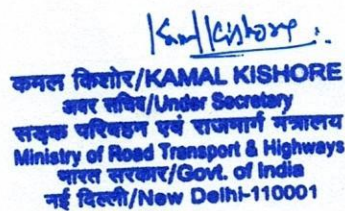 Kamal Kishore
कमल किशोर/KAMAL KISHORE
अवर सचिव/Under Secretary
सड़क परिवहन एवं राजमार्ग मंत्रालय
Ministry of Road Transport & Highways
भारत सरकार/Govt. of India
नई दिल्ली/New Delhi-110001